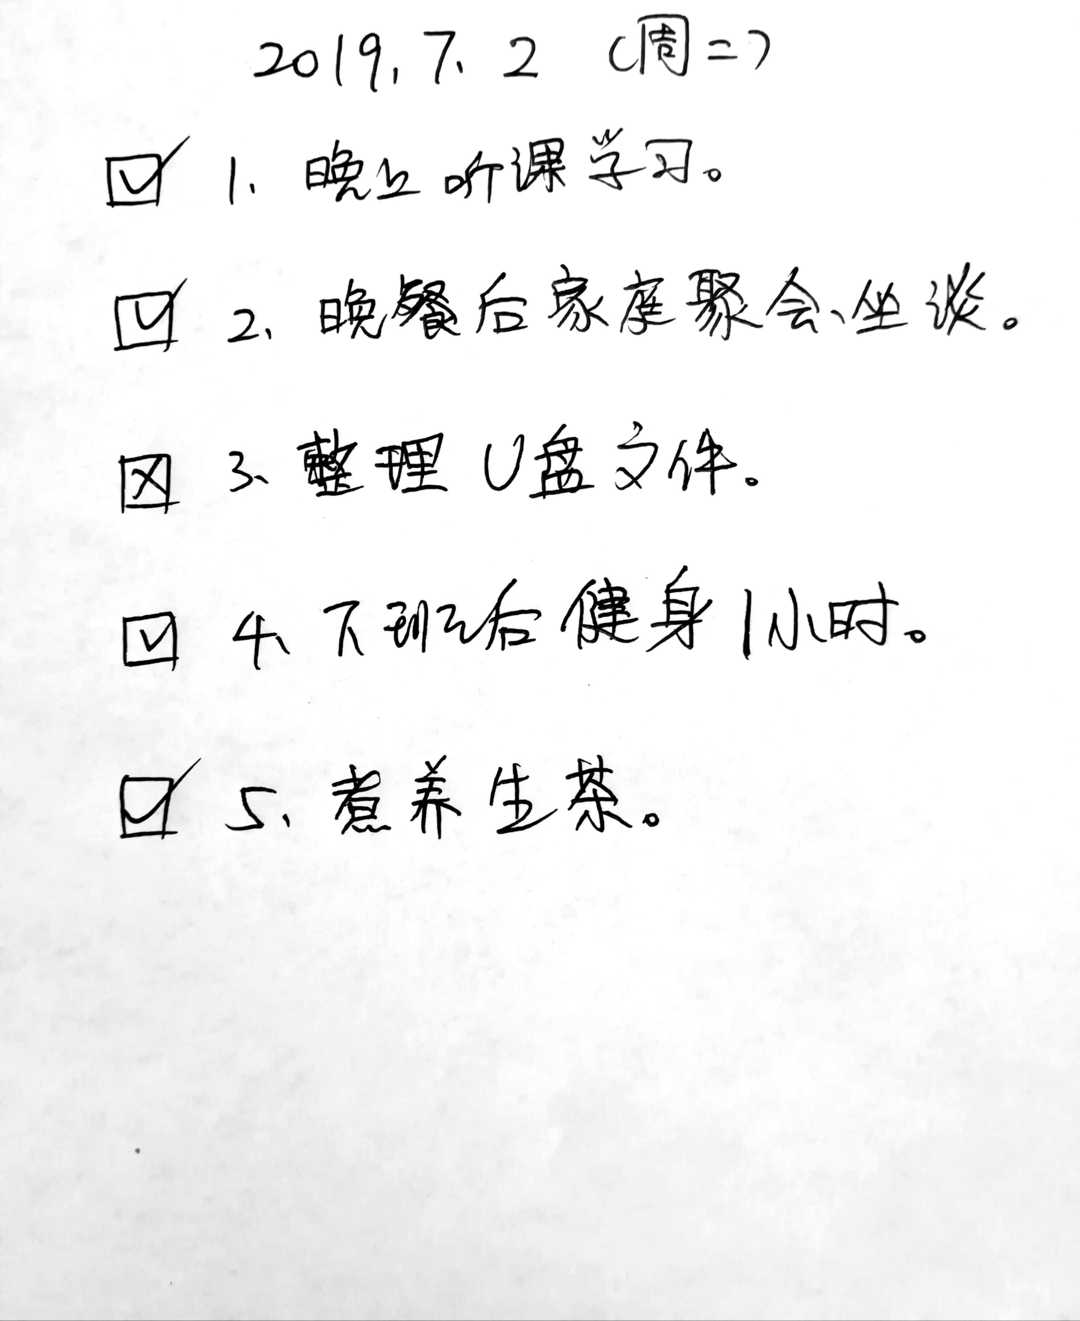 2019.7.2（周二）
☑ 1、晚上听课学习。
☑ 2、晚餐后家庭聚会、坐谈。
☒ 3、整理U盘文件。
☑ 4、下班后健身1小时。
☑ 5、煮养生茶。